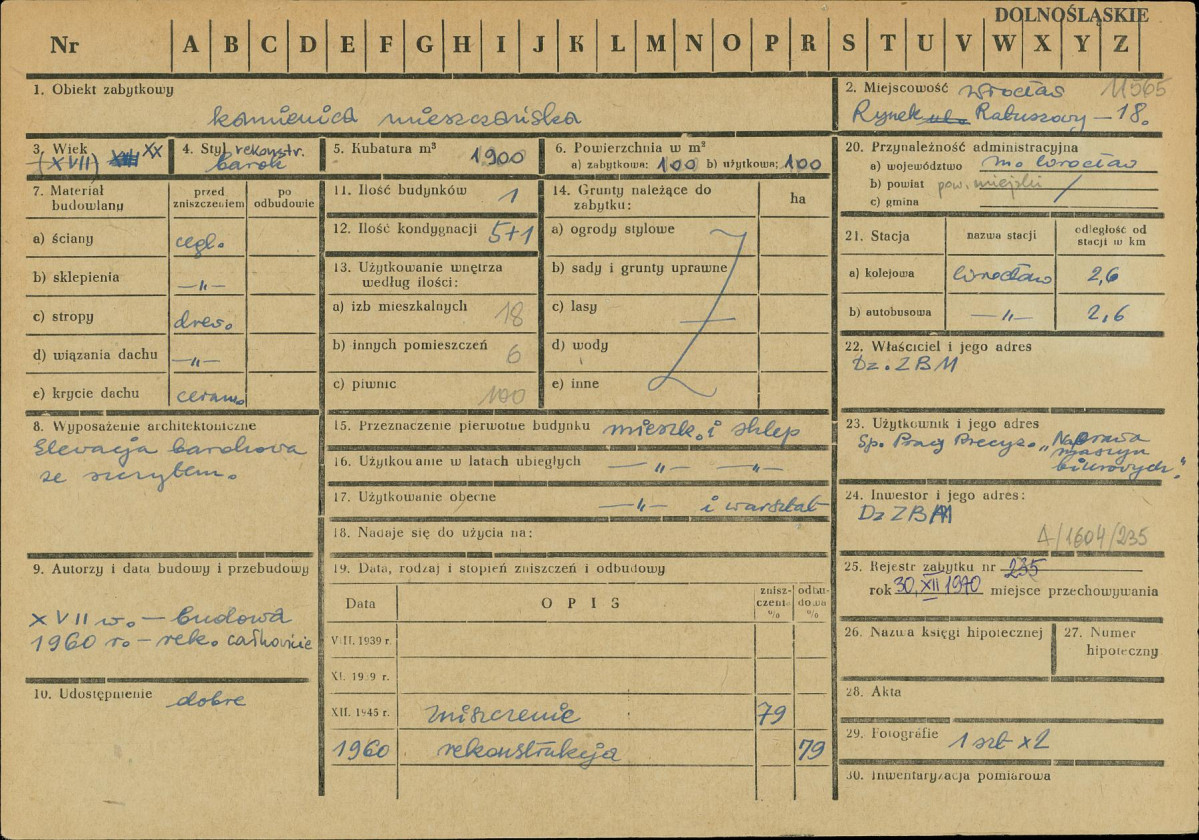 DOLNOŚLĄSKIE
Nr A B C D E F G H I J K L M N O P R S T U V W X Y Z
1. Obiekt zabytkowy
kamienica mieszczańska
2. Miejscowość Wrocław 11565
Rynek Ratuszowy – 18.
3. Wiek
(XVII) XX
4. Styl rekonstr.
barok
5. Kubatura m³
1900
6. Powierzchnia w m²
a) zabytkowa: 100 b) użytkowa: 100
20. Przynależność administracyjna
a) województwo m. Wrocław
b) powiat pow. miejski
c) gmina
7. Materiał budowlany
przed zniszczeniem
po odbudowie
a) ściany cegł.
b) sklepienia —"—
c) stropy drew.
d) wiązania dachu —"—
e) krycie dachu ceram.
11. Ilość budynków 1
12. Ilość kondygnacji 5+1
13. Użytkowanie wnętrza
według ilości:
a) izb mieszkalnych 18
b) innych pomieszczeń 6
c) piwnic 100
14. Grunty należące do
zabytku:
ha
a) ogrody stylowe
b) sady i grunty uprawne
c) lasy
d) wody
e) inne
21. Stacja
nazwa stacji
odległość od
stacji w km
a) kolejowa Wrocław 2,6
b) autobusowa —"— 2,6
22. Właściciel i jego adres
Dz. ZBM
8. Wyposażenie architektoniczne
Elewacja barokowa
ze szczytem.
15. Przeznaczenie pierwotne budynku mieszk. i sklep
16. Użytkowanie w latach ubiegłych —"— —"—
17. Użytkowanie obecne —"— i warsztat
18. Nadaje się do użycia na:
23. Użytkownik i jego adres
Sp. Pracy Precyz. „Naprawa
maszyn
biurowych."
24. Inwestor i jego adres:
Dz ZBM
A/1604/235
9. Autorzy i data budowy i przebudowy
XVII w. – budowa
1960 r. – rek. całkowicie
10. Udostępnienie dobre
19. Data, rodzaj i stopień zniszczeń i odbudowy
Data
OPIS
znisz-
czenia
%
odbu-
dowa
%
VII. 1939 r.
XI. 1939 r.
XII. 1945 r. zniszczenie 79
1960 rekonstrukcja 79
25. Rejestr zabytku nr 235
rok 30, XII 1970 miejsce przechowywania
26. Nazwa księgi hipotecznej
27. Numer
hipoteczny
28. Akta
29. Fotografie 1 szt x2
30. Inwentaryzacja pomiarowa